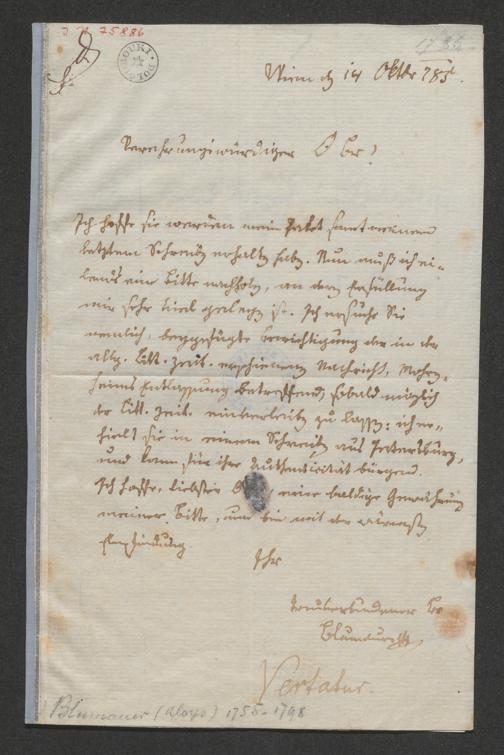 I. N. 75886
1785
Wien d 14 Oktbr 785.
Verehrungswürdiger O Br!
Ich hoffe sie werden mein Paket samt meinem
letzten Schreiben erhalten haben. Nun muß ich ei-
lends eine Bitte nachholen, an deren Erfüllung
mir sehr viel gelegen ist. Ich ersuche Sie
nemlich, beygefügte Berichtigung der in der
allg. Litt. Zeit. erschienenen Nachricht,
Entlassung betreffend, sobald möglich
der Litt. Zeit. einverleiben zu lassen; ich er-
hielt sie in einem Schreiben aus Petersburg,
und kann für ihre Authenticität bürgen.
Ich hoffe, liebster eine baldige Gewährung
meiner Bitte, und bin mit der wärmsten
Empfindung
Ihr
treuverbundener Br
Blumauer
Vertatur.
Blumauer (Aloys) 1755-1798